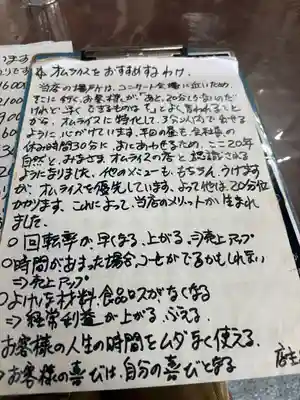 * オムライスをおすすめするわけ。
当店の場所が、コンサート会場に近いため、
そこに行く、お客様が「あと、20分しかないのだ
けれど、早くできるものは?」とよく言われることか
ら、オムライスに特化して、3分以内で出せる
ように心がけています。平日の昼も会社員の
休み時間30分に、まにあわせるため、ここ20年
自然と、みなさま、オムライスの店と認識できる
ようになりました。他のメニューも、もちろん、うけます
が、オムライスを優先しています。よって他は、20分位
かかります。これによって、当店のメリットが生まれ
ました。
○回転率が、早くなる、上がる、⇒売上アップ
○時間があまった場合、コーヒーがでるかもしれない
⇒売上アップ
○よけいな材料、食品ロスがなくなる
⇒経常利益が上がる、ふえる。
お客様の人生の時間をムダなく使える。
お客様の喜びは、自分の喜びとなる
店主